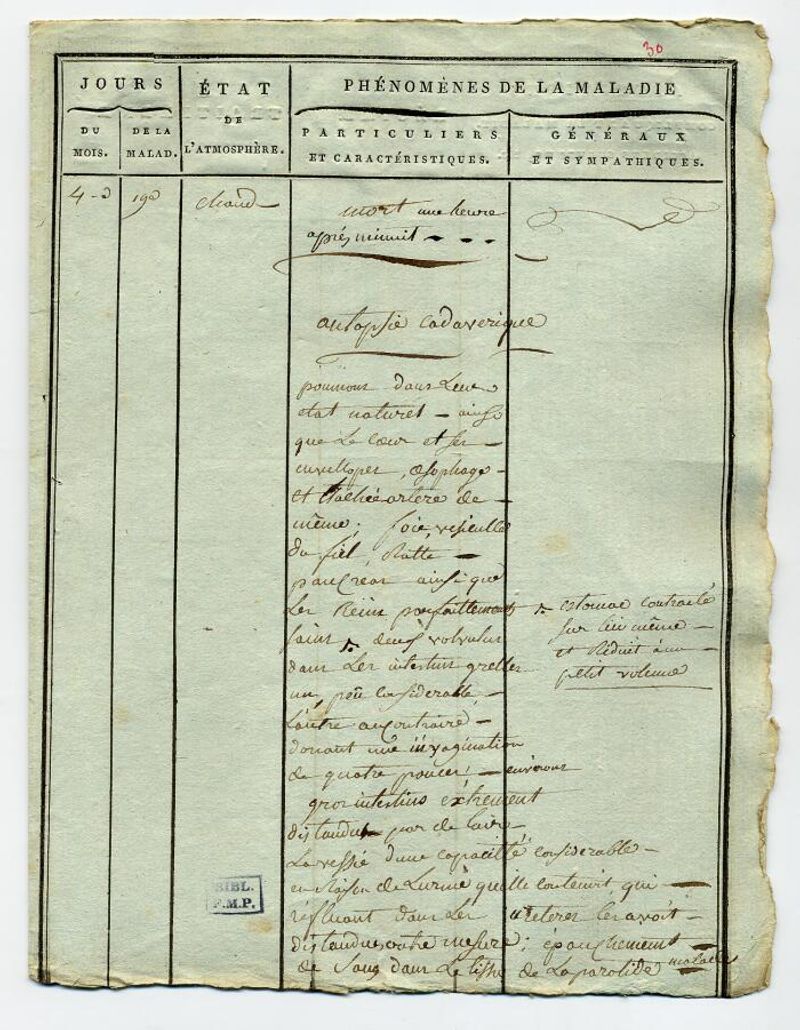 30
JOURS
DU MOIS.
DE LA MALAD.
ÉTAT DE L'ATMOSPHÈRE.
PHÉNOMÈNES DE LA MALADIE
PARTICULIERS ET CARACTÉRISTIQUES.
GÉNÉRAUX ET SYMPATHIQUES.
4 19 chaud mort une heure
après minuit
autopsie cadaverique
poumons dans Leur
etat naturel – ainsi
que Le cœur et ses –
envelloper, œsophage –
et trachée artere de –
même; foie, vesiculle
du fiel, Ratte –
pancreas ainsi que
Les Reins parfaittements
sains deux volvulus
dans Les intestins grelles
un, peu considerable –
L'autre au contraire –
donant une invagination
de quatre pouces, – environs
gros intestins extrement
distandus par de l'aire –
La vessie d'une capacitté considerable –
en Raison de L'urine quelle contenoit, qui –
refluant dans Les ureteres les avoit –
distandus outre mesure; épanchement –
de sang dans Le tissu de La parotide malade
estomac contracté
sur lui même –
et Réduit à un –
petit volume
BIBL.
F.M.P.